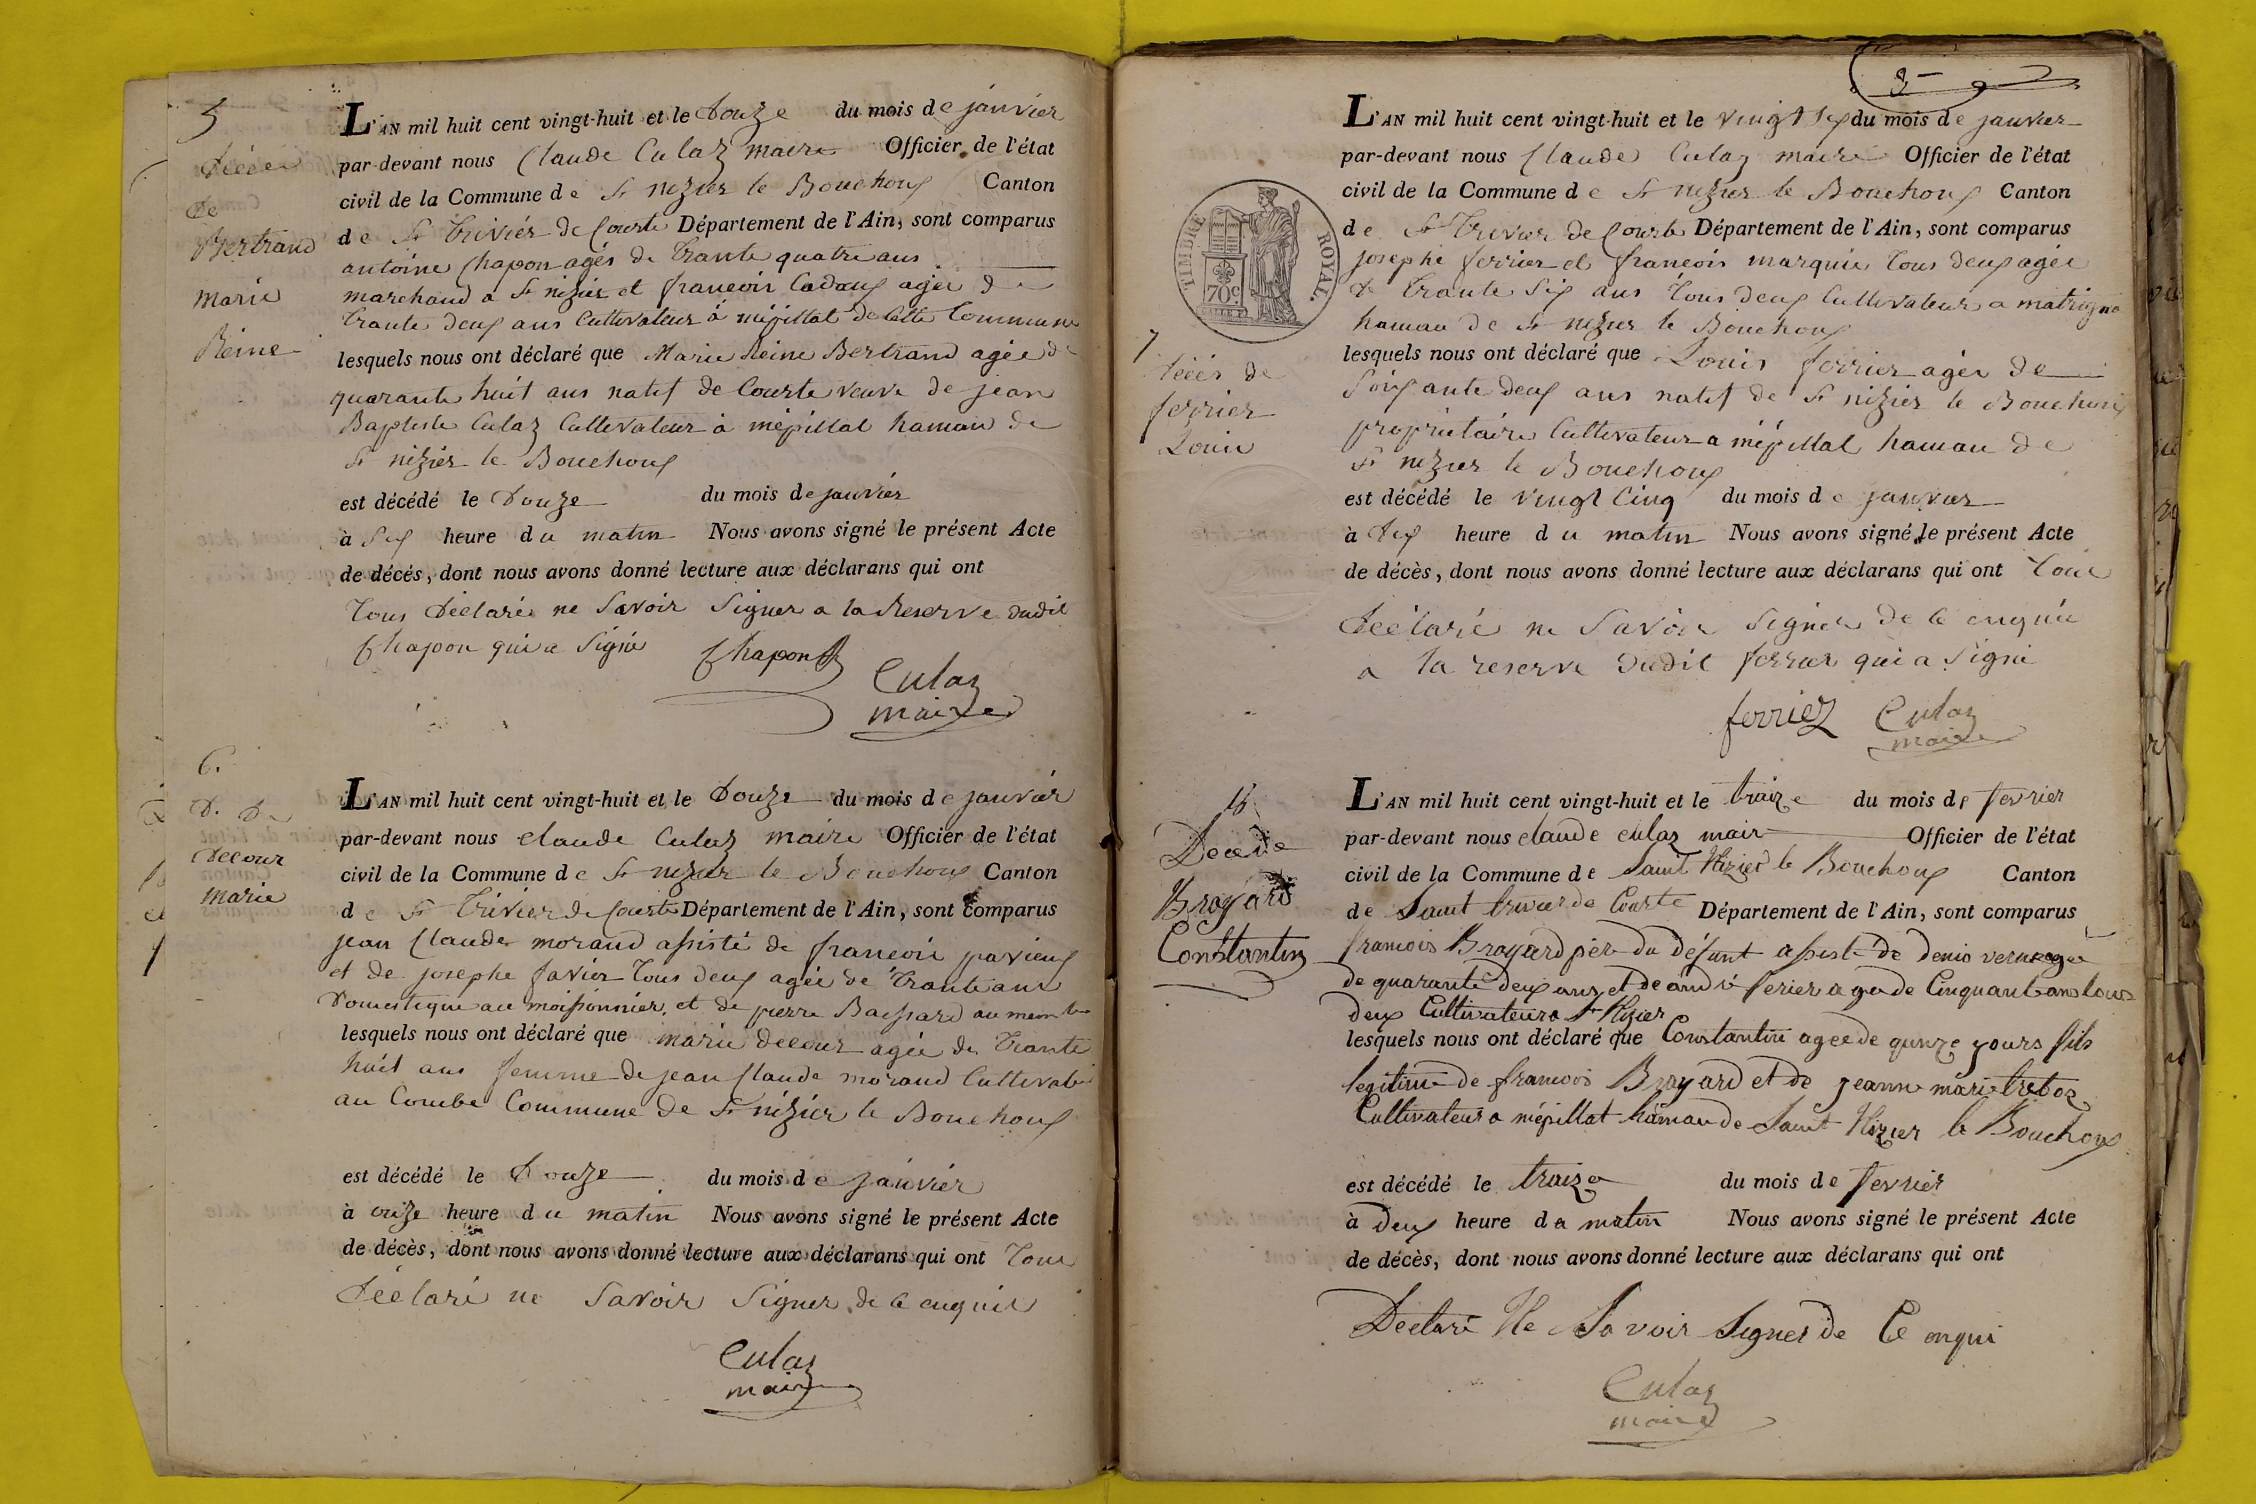 5
décès
de
Bertrand
marie
Reine
L'AN mil huit cent vingt-huit et le douze du mois de janvier
par-devant nous Claude Culaz maire Officier de l'état
civil de la Commune de St nizier le Bouchoux Canton
de St trivier de Courte Département de l'Ain, sont comparus
antoine Chapon agés de trante quatre ans
marchand a St nizier et francois Cadoux agée de
trante deux ans Cultivateur a mépillat de Cette Commune
lesquels nous ont déclaré que Marie Reine Bertrand agée de
quarante huit ans natif de Courte veuve de jean
Baptiste Culaz Cultivateur a mépillat hamau de
St nizier le Bouchoux
est décédé le douze du mois de janvier
à Six heure du matin Nous avons signé le présent Acte
de décés, dont nous avons donné lecture aux déclarans qui ont
tous déclarés ne Savoir Signer a la Reserve dudit
Chapon qui a Signé Chapon
Culaz
maire
6.
d. de
decour
marie
L'AN mil huit cent vingt-huit et le douze du mois de janvier
par-devant nous claude Culaz maire Officier de l'état
civil de la Commune de St nizier le Bouchoux Canton
de St trivier de Courte Département de l'Ain, sont comparus
jean Claude morand assisté de francois pavioux
et de josephe favier tous deux agée de trante ans
domestique au moissonnier, et de pierre Bassard au
lesquels nous ont déclaré que marie decour agée de trante
huit ans femme de jean Claude morand Cultivateur
au Combe Commune de St nizier le Bouchoux
est décédé le douze du mois de janvier
à onze heure du matin Nous avons signé le présent Acte
de décès, dont nous avons donné lecture aux déclarans qui ont tous
déclaré ne Savoir Signer de ce enquis
Culaz
maire
TIMBRE ROYAL.
70c
7
décés de
ferrier
Louis
L'AN mil huit cent vingt-huit et le vingt six du mois de janvier
par-devant nous Claude Culaz maire Officier de l'état
civil de la Commune de St nizier le Bouchoux Canton
de St trivier de Courte Département de l'Ain, sont comparus
josephe ferrier et francois marquis tous deux agée
de trante six ans tous deux Cultivateur a matrigna
hamau de St nizier le Bouchoux
lesquels nous ont déclaré que Louis ferrier agée de
soixante deux ans natif de St nizier le Bouchoux
propriétaire Cultivateur a mépillat hamau de
St nizier le Bouchoux
est décédé le vingt Cinq du mois de janvier
à dix heure du matin Nous avons signé le présent Acte
de décès, dont nous avons donné lecture aux déclarans qui ont tous
déclaré ne Savoir Signer de ce enquis
a la reserve dudit ferrier qui a Signé
ferriez Culaz
maire
Decé de
Brayard
Constantin
L'AN mil huit cent vingt-huit et le traize du mois de fevrier
par-devant nous claude culaz mair Officier de l'état
civil de la Commune de Saint Nizier le Bouchoux Canton
de Saint trivier de Courte Département de l'Ain, sont comparus
francois Brayard père du défunt assisté de denis agée
de quarante deux ans et de andré ferier agé de Cinquante ans tous
deux Cultivateur a St Nizier
lesquels nous ont déclaré que Constantin agée de quinze yours fils
legitime de francois Brayard et de jeanne marie treboz
Cultivateur a mépillat hamau de Saint Nizier le Bouchoux
est décédé le traize du mois de fevrier
à deux heure da matin Nous avons signé le présent Acte
de décès, dont nous avons donné lecture aux déclarans qui ont
Déclaré Ne Savoir Signer de Ce enqui
Culaz
maire